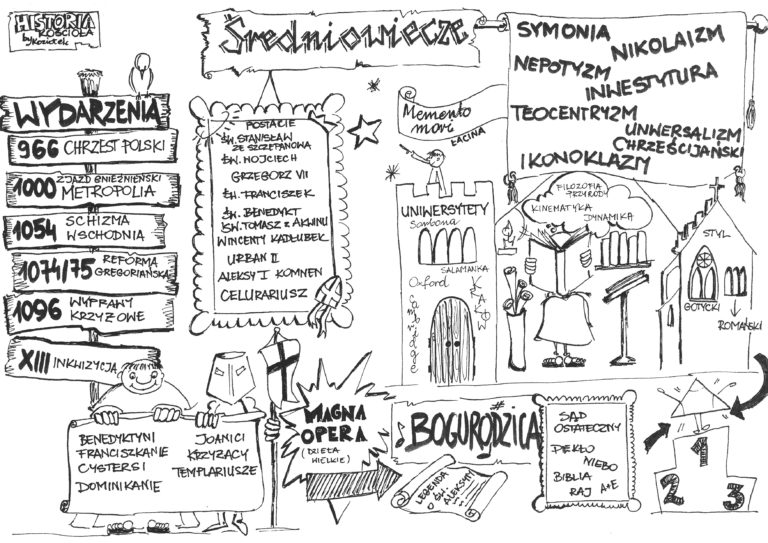 HISTORIA
KOŚCIOŁA
by JKoziołek
Średniowiecze
WYDARZENIA
966 CHRZEST POLSKI
1000 ZJAZD GNIEŹNIEŃSKI
METROPOLIA
1054 SCHIZMA
WSCHODNIA
1074/75 REFORMA
GREGORIAŃSKA
1096 WYPRAWY
KRZYŻOWE
XIII INKWIZYCJA
POSTACIE
ŚW. STANISŁAW
ZE SZCZEPANOWA
ŚW. WOJCIECH
GRZEGORZ VII
ŚW. FRANCISZEK
ŚW. BENEDYKT
ŚW. TOMASZ z AKWINU
WINCENTY KADŁUBEK
URBAN II
ALEKSY I KOMNEN
CELURARIUSZ
Memento
mori
ŁACINA
SYMONIA
NIKOLAIZM
NEPOTYZM
INWESTYTURA
TEOCENTRYZM
UNIWERSALIZM
CHRZEŚCIJAŃSKI
IKONOKLAZM
UNIWERSYTETY
Sorbona
SALAMANKA
Oxford
Cambridge
KRAKÓW
FILOZOFIA
PRZYRODY
KINEMATYKA
DYNAMIKA
STYL
GOTYCKI
ROMAŃSKI
BENEDYKTYNI
FRANCISZKANIE
CYSTERSI
DOMINIKANIE
JOANICI
KRZYŻACY
TEMPLARIUSZE
MAGNA
OPERA
(DZIEŁA
WIELKIE)
BOGURODZICA
LEGENDA
O ŚW.
ALEKSYM
SĄD
OSTATECZNY
PIEKŁO
NIEBO
BIBLIA
RAJ A+E
1
2
3